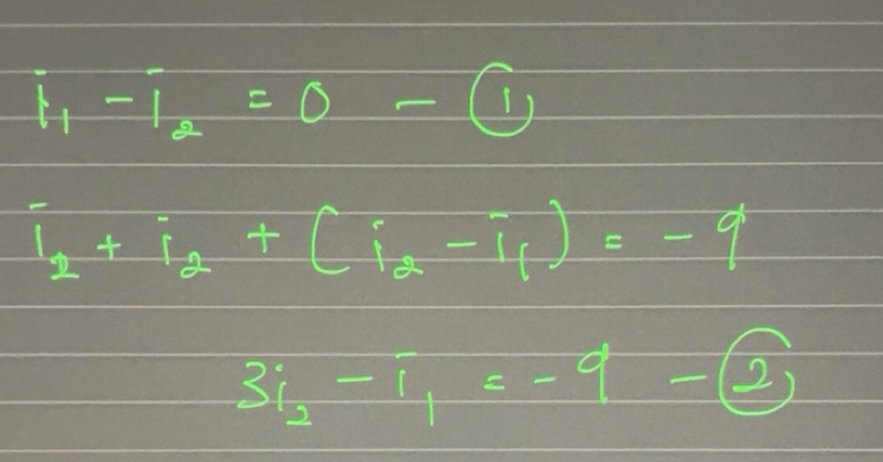 i₁ - i₂ = 0 - ①
i₂ + i₂ + (i₂ - i₁) = - 9
3i₂ - i₁ = - 9 - ②